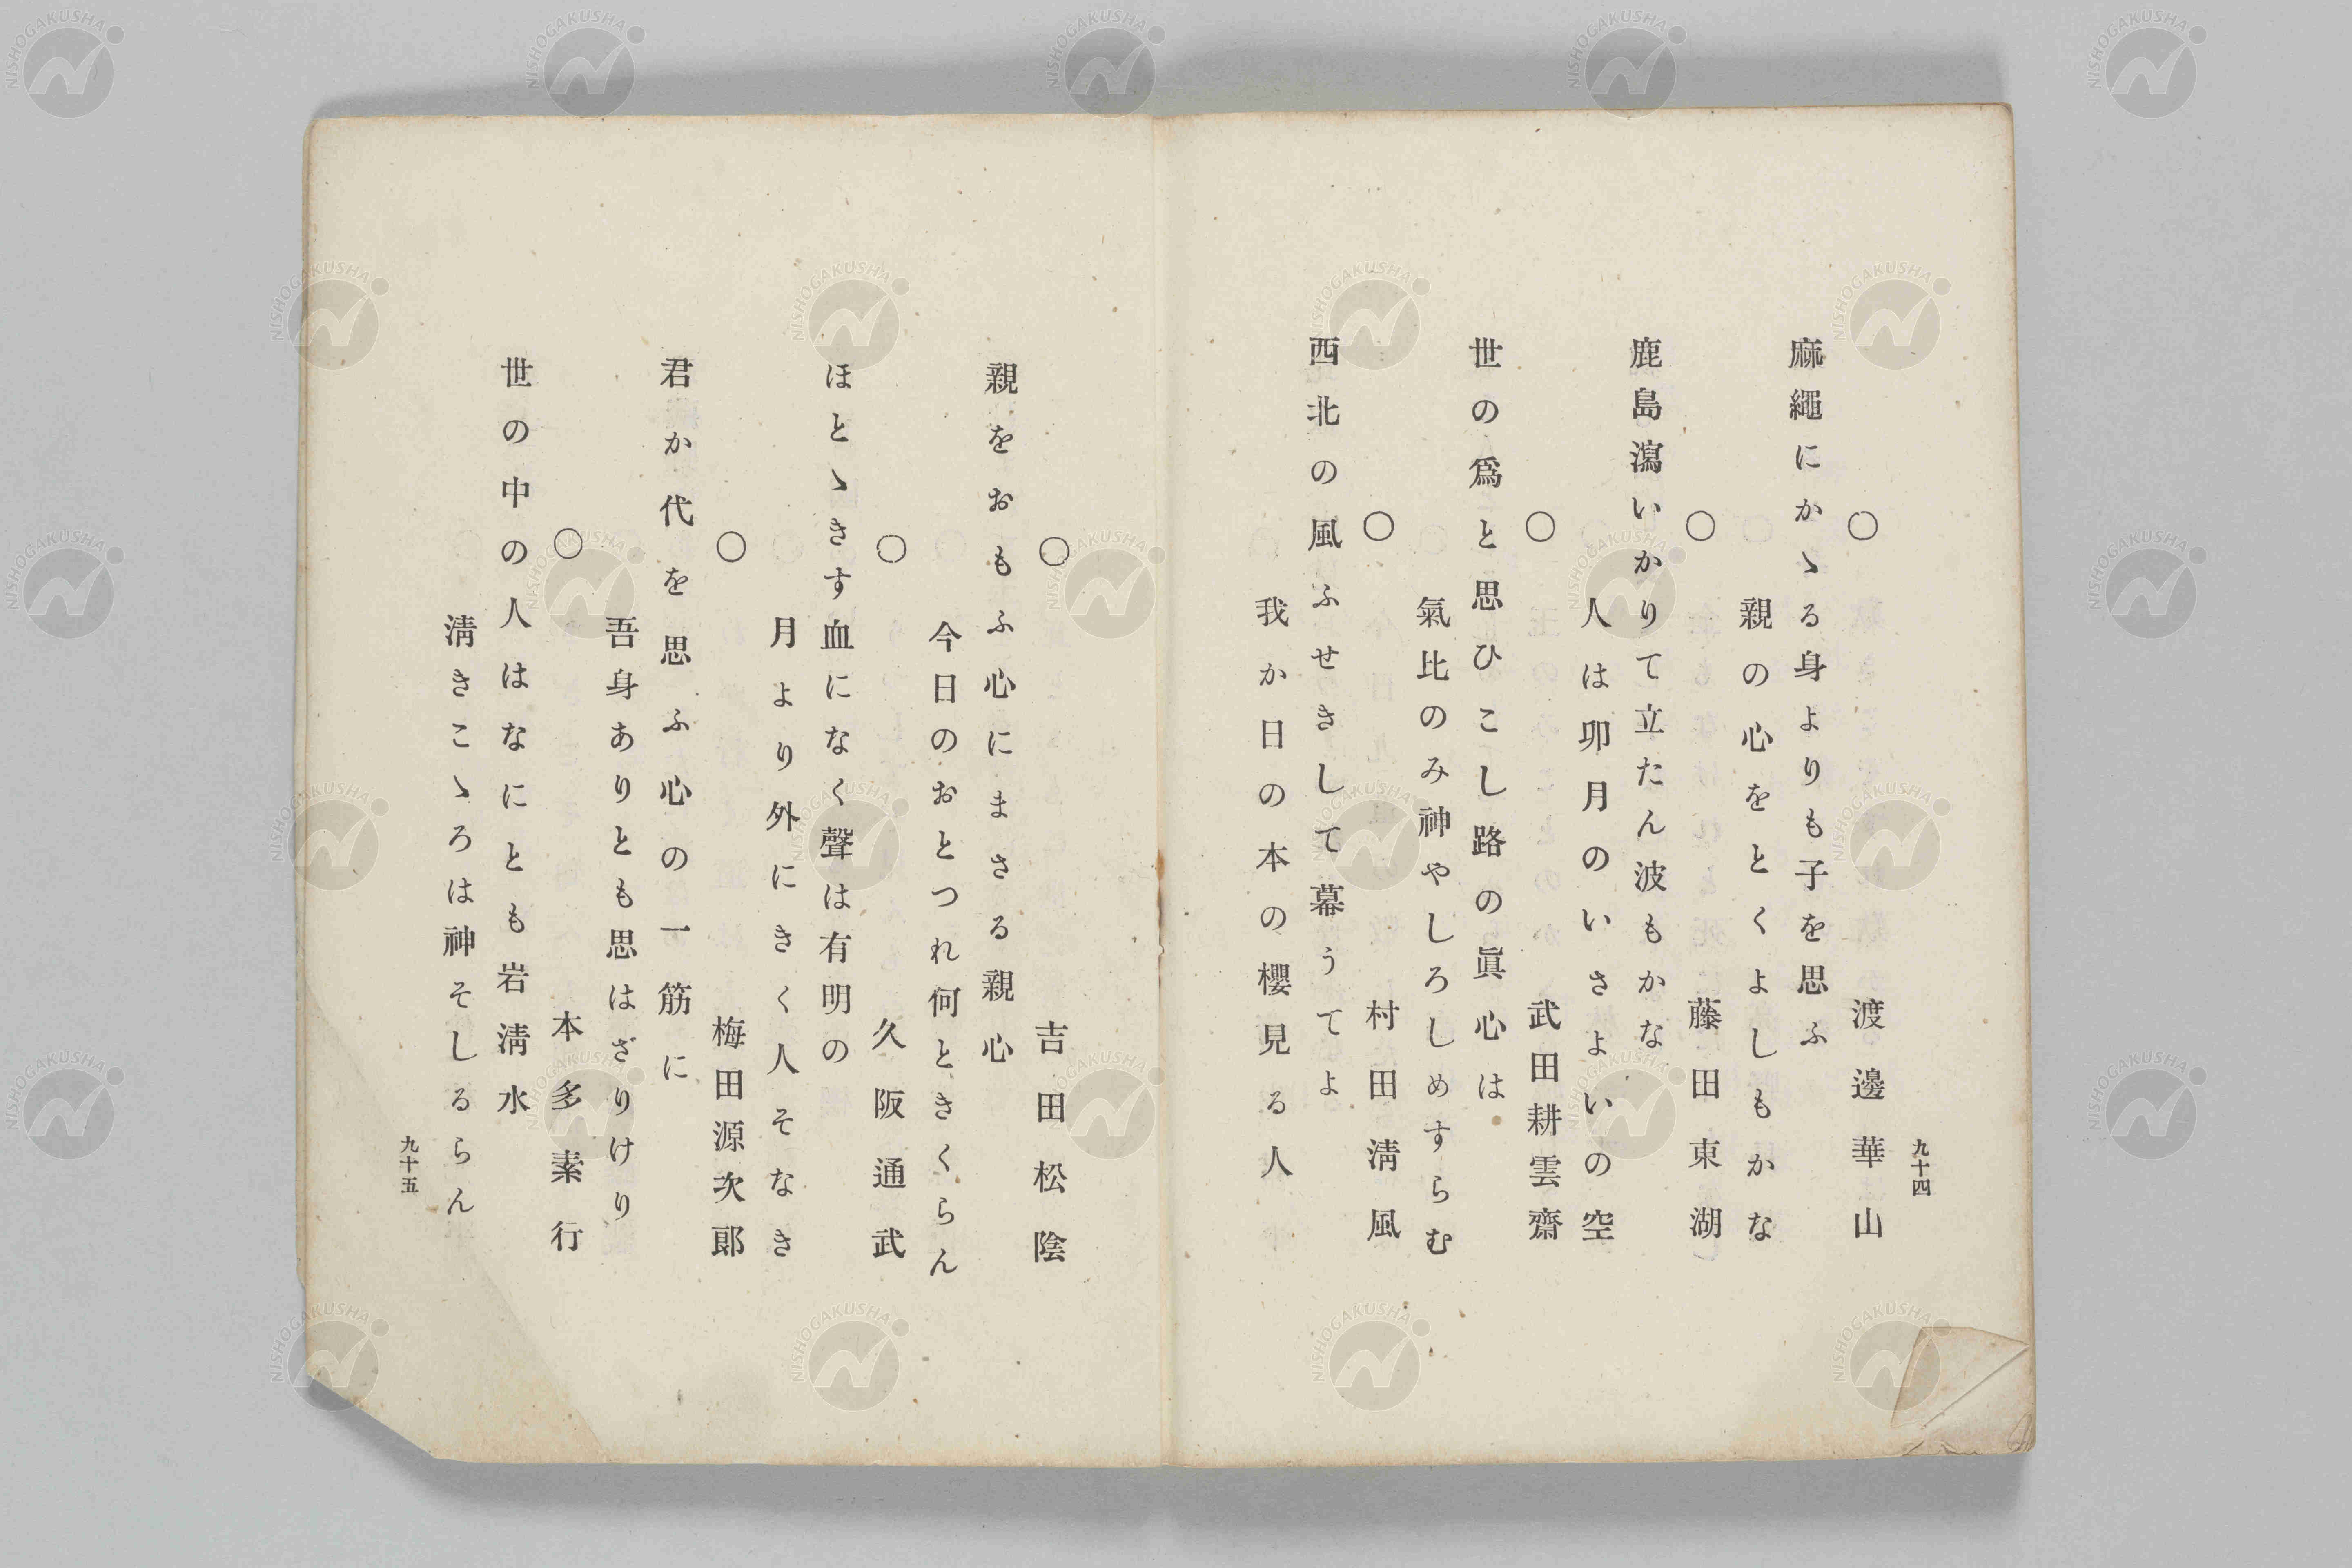 九十四
○ 渡邊華山
麻繩にかゝる身よりも子を思ふ
親の心をとくよしもかな
○ 藤田東湖
鹿島瀉いかりて立たん波もかな
人は卯月のいさよいの空
○ 武田耕雲齋
世の爲と思ひこし路の眞心は
氣比のみ神やしろしめすらむ
○ 村田淸風
西北の風ふせきして幕うてよ
我か日の本の櫻見る人
○ 吉田松陰
親をおもふ心にまさる親心
今日のおとつれ何ときくらん
○ 久阪通武
ほとゝきす血になく聲は有明の
月より外にきく人そなき
○ 梅田源次郞
君か代を思ふ心の一筋に
吾身ありとも思はざりけり
○ 本多素行
世の中の人はなにとも岩淸水
淸きこゝろは神そしるらん
九十五
NISHOGAKUSHA